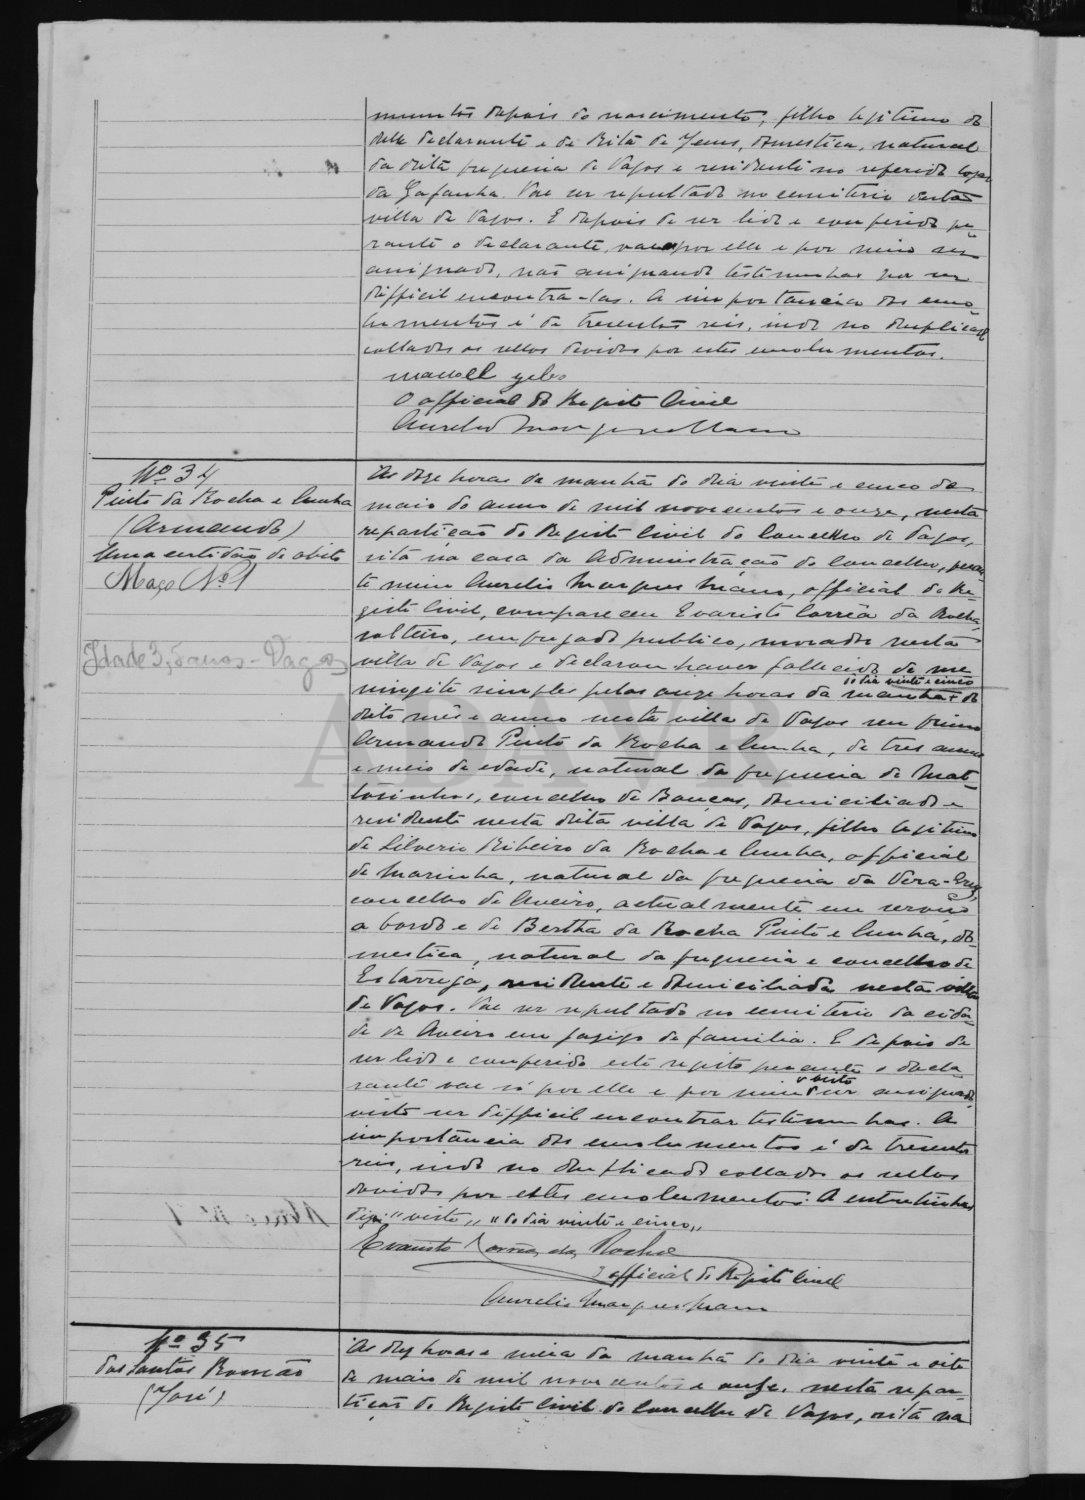 mentos depois do nascimento, filho legitimo de
elle declarante e de Rita de Jesus, domestica, natural
da dita freguesia de Vagos e residente no referido logar
da Gafanha. Vae ser sepultado no cemiterio desta
villa de Vagos. E depois de ser lido e conferido pe-
rante o declarante, vae por elle e por mim ser
assignado, não assignando testimunhas por ser
difficil encontra-las. A importancia dos emo-
lumentos é de tresentos reis, indo no duplicado
collados os sellos devidos por estes emolumentos.
O official do Registo Civil
Nº 34
Pinto da Rocha e Cunha
(Armando)
Uma certidão de obito
Maço Nº 1
Idade 3,5 anos - Vagos
As doze horas da manhã do dia vinte e cinco de
maio do anno de mil novecentos e onze, nesta
repartição do Registo Civil do Concelho de Vagos,
sita na casa da Administração do Concelho, peran-
te mim Aurelio Marques Mano, official do Re-
gisto Civil, compareceu Evaristo Corrêa da Rocha,
solteiro, empregado publico, morador nesta
villa de Vagos e declarou haver fallecido de me-
do dia vinte e cinco
ningite simples pelas onze horas da manhã + do
dito mês e anno nesta villa de Vagos seu primo
Armando Pinto da Rocha e Cunha, de tres annos
e meio de edade, natural da freguesia de Mat-
tosinhos, concelho de Bouças, domiciliado e
residente nesta dita villa de Vagos, filho legitimo
de Silverio Ribeiro da Rocha e Cunha, official
de Marinha, natural da freguesia da Vera-Cruz,
concelho de Aveiro, actualmente em serviço
a bordo e de Bertha da Rocha Pinto e Cunha, do-
mestica, natural da freguesia e concelho de
Estarreja, residente e domiciliada nesta villa
de Vagos. Vae ser sepultado no cemiterio da cida-
de de Aveiro em jazigo de familia. E depois de
ser lido e conferido este registo perante o decla-
rante vae só por elle e por mim ser assignado
visto
visto ser difficil encontrar testimunhas. A
importância dos emolumentos é de tresentos
reis, indo no duplicado collados os sellos
devidos por estes emolumentos. A entrelinha
diz: "visto" "do dia vinte e cinco"
Evaristo Corrêa da Rocha
O official do Registo Civil
Aurelio Marques Mano
Nº 35
dos Santos Romão
(José)
As dez horas e meia da manhã do dia vinte e oito
de maio de mil novecentos e onze, nesta repar-
tição do Registo Civil do Concelho de Vagos, sita na
ADAVR